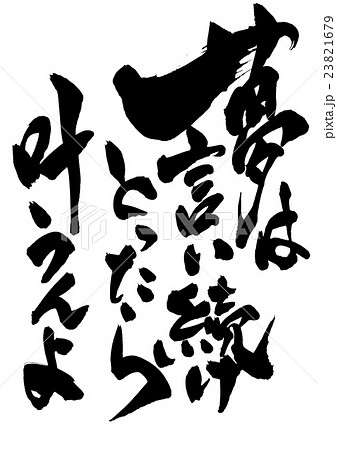 夢は
言い続け
とったら
叶うんよ
PIXTA
pixta.jp - 23821679